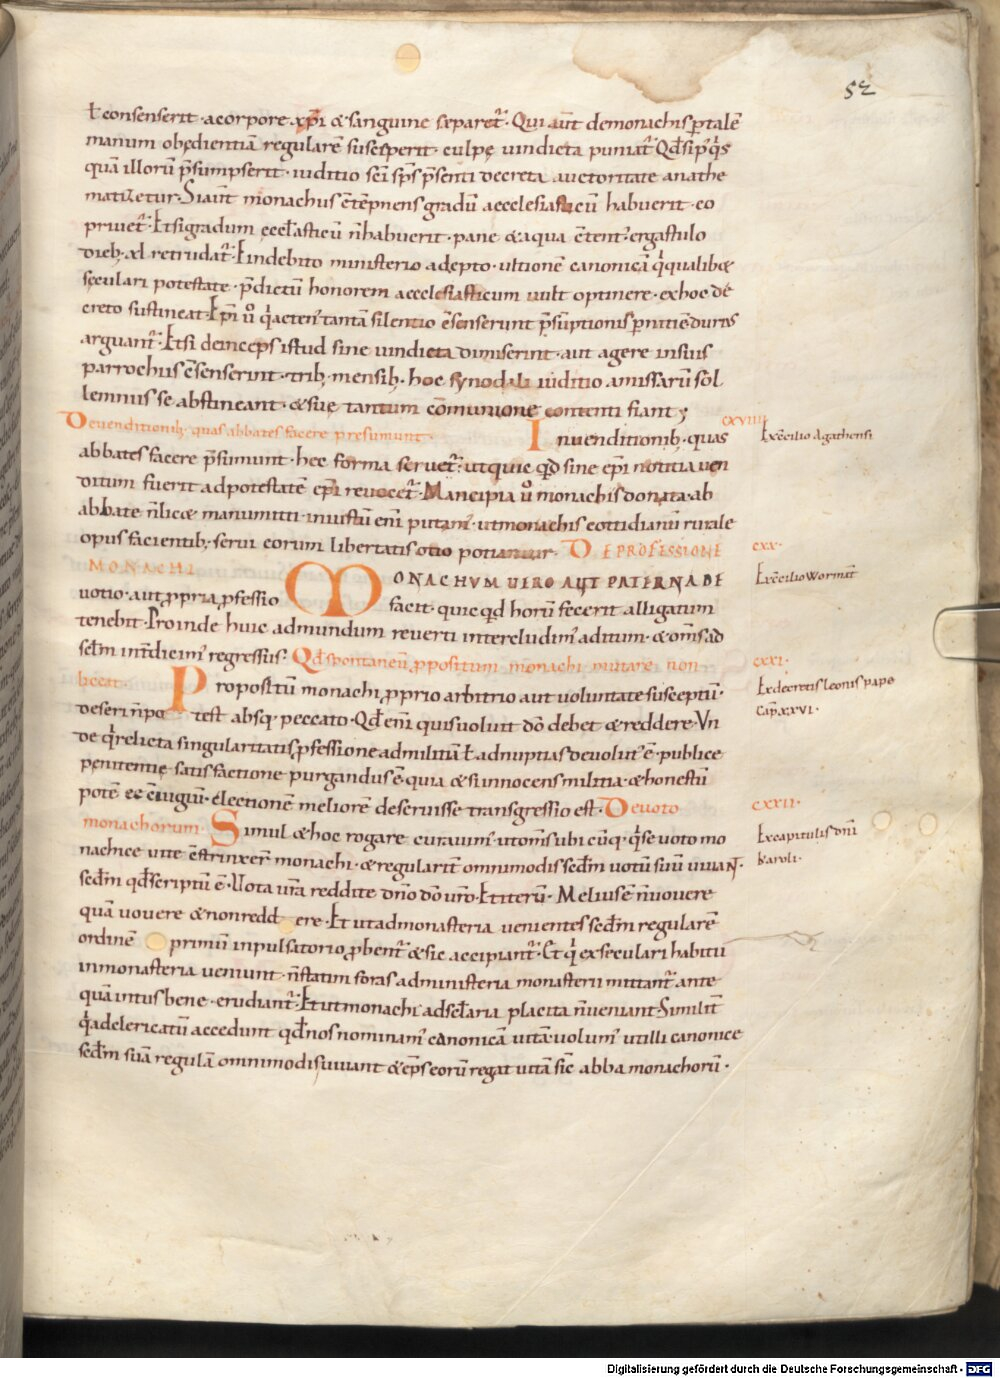 52
ł consenserit · a corpore xp̄i & sanguine separet᷑ · Qui aut̄ de monachis p talē
manum obędientiā regularē susceperit · culpę uindicta puniat᷑ · Qđ si p̄ q̄s
quā illorū p̄sumpserit · iuditio sc̄i sp̄s p̄senti decreta auctoritate anathe
matizetur · Si aut̄ monachus c̄tēpnens gradū aecclesiasticū habuerit · eo
priuet᷑ · Et si gradum eccl̄asticū n̄ habuerit · pane & aqua c̄tent᷑ ergastulo
dieb; xl retrudat᷑ · Et indebito ministerio adepto · ultionē canonicā q̄ qualib&
sęculari potestate · p̄dictū honorem aecclesiasticum uult optinere · ex hoc de
creto sustineat · Ep̄i ū q̄ acten᷑ tantā silentio c̄senserunt p̄sūptionis pnitiē duri᷑
arguant᷑ · Et si deinceps istud sine uindicta dimiserint · aut agere in suis
parrochiis c̄senserint · trib; mensib; hoc synodali iuditio a missarū sol
lemniis se abstineant · & sue tantum cōmunione contenti fiant ;
De uenditionib; quas abbates facere presumunt · In uenditionib; quas
cxviiii
Ex c̄cilio Agathensi
abbates facere p̄sumunt · hec forma seruet᷑ · ut quicqđ sine ep̄i notitia uen
ditum fuerit ad potestatē ep̄i reuocet᷑ · Mancipia ū monachis donata · ab
abbate n̄ lic& manumitti · iniustū eni᷑ putam᷑ · ut monachis cottidianū rurale
opus facientib; serui eorum libertatis otio potiantur · DE PROFESSIONE
cxx ·
MONACHI
MONACHVM UERO AUT PATERNA DE
Ex c̄cilio Wormat̄
uotio · aut propria pfessio facit · quicqđ horū fecerit alligatum
tenebit · Proinde huic ad mundum reuerti intercludim᷑ aditum · & om̄s ad
sec̄lm int̄dicim᷑ regressus · Qđ spontaneū propositum monachi mutare non
cxxi ·
liceat · Propositū monachi proprio arbitrio aut uoluntate susceptū ·
Ex decretis leonis pape
Cap̄ xxvi ·
deseri n̄ potest absq; peccato · Qđ eni᷑ quis uouit dō debet & reddere · Vn
de q̄ relicta singularitatis pfessione ad militiā ł ad nuptias deuolut᷑ ē · publice
penitentie satisfactione purgandus ē · quia & si innocens militia · & honestū
potē ee c̄iugiū · electionē meliorē deseruisse transgressio est · De uoto
cxxii ·
monachorum · Simul & hoc rogare curauim᷑ · ut om̄s ubicūq; q̄ se uoto mo
Ex capitulis dn̄i
karoli ·
nachice uite c̄strinxer̄ monachi · & regularit᷑ omnimodis secđm uotū suū uiuaNT ·
secđm qđ scriptū ē · Uota ur̄a reddite dn̄o dō ur̄o · Et iterū · Melius ē n̄ uouere
quā uouere & non reddere · Et ut ad monasteria uenientes secđm regularē
ordinē primū in pulsatorio pbent᷑ & sic accipiant᷑ · Et q̄ ex seculari habitu
in monasteria ueniunt · n̄ statim foras ad ministeria monasterii mittant᷑ ante
quā intus bene · erudiant᷑ · Et ut monachi ad sęcl̄aria placita n̄ ueniant · Similit᷑
q̄ ad clericatū accedunt qđ nos nominam᷑ canonicā uitā · uolum᷑ ut illi canonice
secđm suā regulā omnimodis uiuant & ep̄s eorū regat uitā sic̄ abba monachorū ·
Digitalisierung gefördert durch die Deutsche Forschungsgemeinschaft - DFG